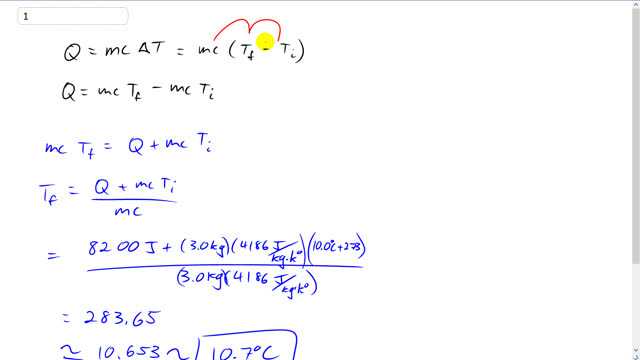 1
Q = mc ΔT = mc (T_f - T_i)
Q = mc T_f - mc T_i
mc T_f = Q + mc T_i
T_f = (Q + mc T_i) / mc
= 8200 J + (3.0 kg)(4186 J/kg·K°)(10.0°C+273)
(3.0 kg)(4186 J/kg·K°)
= 283.65
≈ 10.653 ≈ 10.7°C